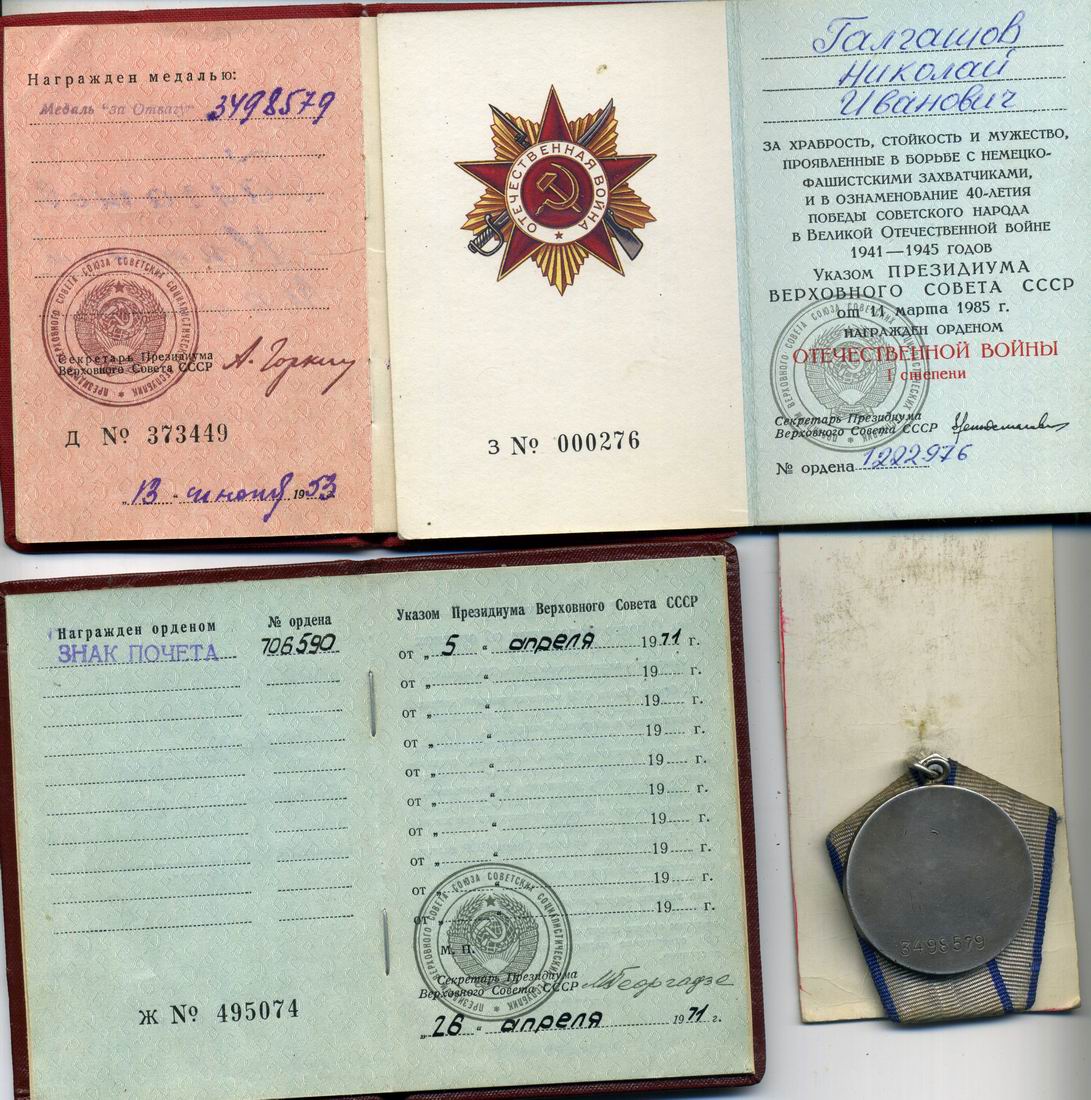 Награжден медалью:
Медаль "за Отвагу" 3498579
Секретарь Президиума
Верховного Совета СССР
А. Горкин
Д № 373449
„13“ июня 1953
ОТЕЧЕСТВЕННАЯ ВОЙНА
З № 000276
Галгашов
Николай
Иванович
ЗА ХРАБРОСТЬ, СТОЙКОСТЬ И МУЖЕСТВО,
ПРОЯВЛЕННЫЕ В БОРЬБЕ С НЕМЕЦКО-
ФАШИСТСКИМИ ЗАХВАТЧИКАМИ,
И В ОЗНАМЕНОВАНИЕ 40-ЛЕТИЯ
ПОБЕДЫ СОВЕТСКОГО НАРОДА
В ВЕЛИКОЙ ОТЕЧЕСТВЕННОЙ ВОЙНЕ
1941—1945 ГОДОВ
УКАЗОМ ПРЕЗИДИУМА
ВЕРХОВНОГО СОВЕТА СССР
от 11 марта 1985 г.
НАГРАЖДЕН ОРДЕНОМ
ОТЕЧЕСТВЕННОЙ ВОЙНЫ
I степени
Секретарь Президиума
Верховного Совета СССР
№ ордена 1222976
Награжден орденом № ордена
ЗНАК ПОЧЕТА 706590
Указом Президиума Верховного Совета СССР
от „5“ апреля 1971 г.
от „ “ 19 г.
от „ “ 19 г.
от „ “ 19 г.
от „ “ 19 г.
от „ “ 19 г.
от „ “ 19 г.
от „ “ 19 г.
от „ “ 19 г.
от „ “ 19 г.
от „ “ 19 г.
М. П.
Секретарь Президиума
Верховного Совета СССР
М Георгадзе
Ж № 495074
„26“ апреля 1971 г.
3498579